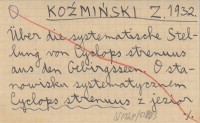 KOŹMIŃSKI Z. 1932.
Über die systematische Stel-
lung von Cyclops strenuus
aus den Gebirgsseen. O sta-
nowisku systematycznem
Cyclops strenuus z jezior